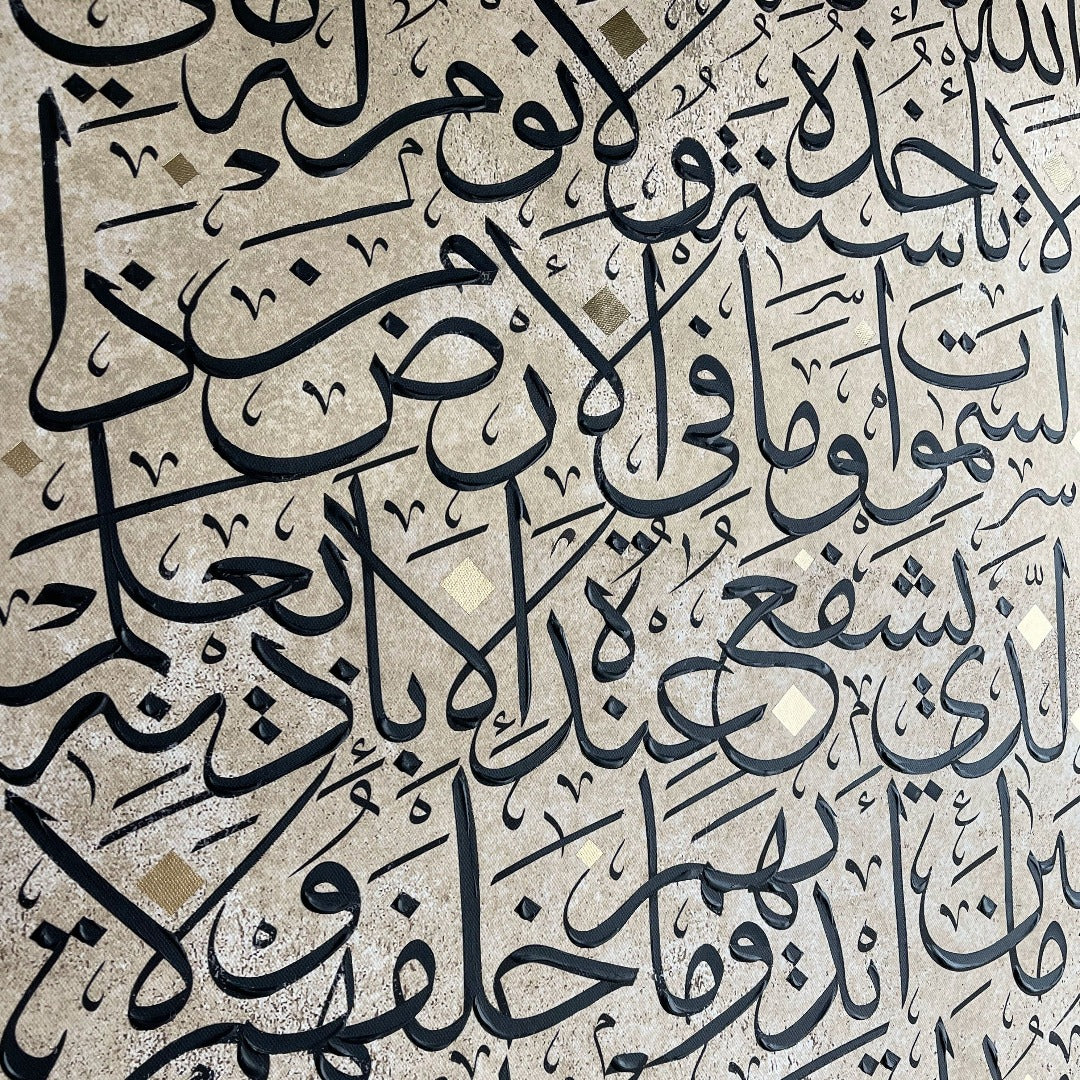 الله
لَا تَأْخُذُهُ سِنَةٌ وَلَا نَوْمٌ لَهُ
السَّمٰوَاتِ وَمَا فِي الْأَرْضِ مَنْ ذَا
الَّذِي يَشْفَعُ عِنْدَهُ إِلَّا بِإِذْنِهِ يَعْلَمُ
مَا بَيْنَ أَيْدِيهِمْ وَمَا خَلْفَهُمْ وَلَا